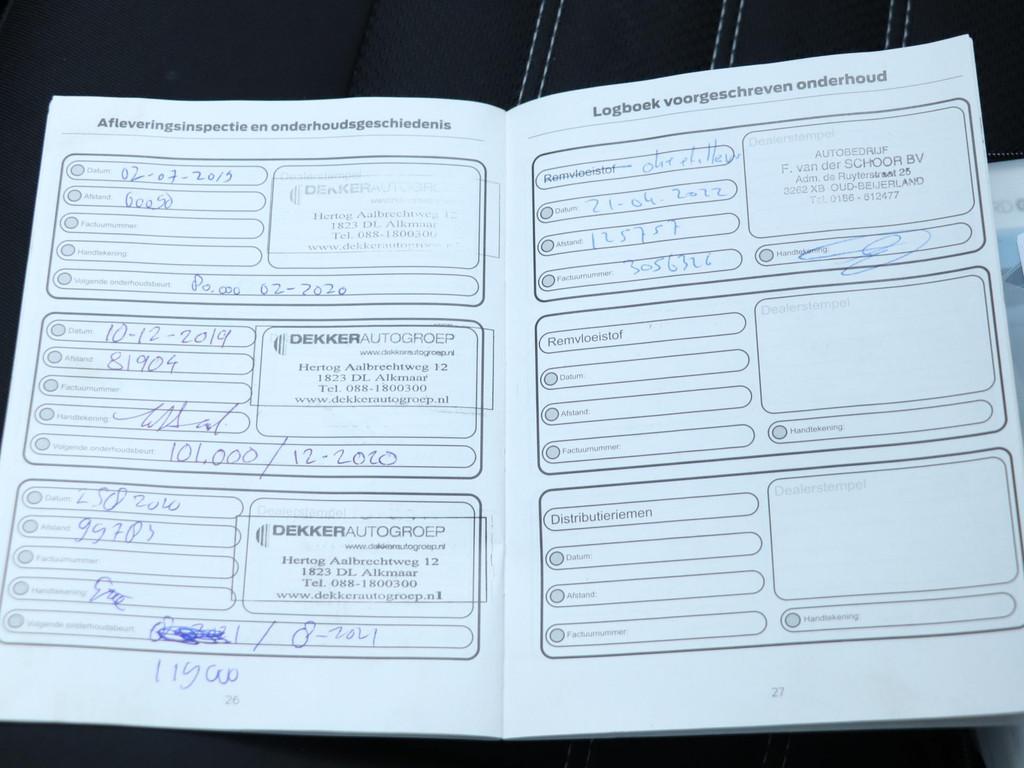 Afleveringsinspectie en onderhoudsgeschiedenis
Datum: 02-07-2019
Afstand: 60090
Factuurnummer:
Handtekening:
Volgende onderhoudsbeurt: 80.000 02-2020
Dealerstempel
DEKKERAUTOGROEP
Hertog Aalbrechtweg 12
1823 DL Alkmaar
Tel. 088-1800300
www.dekkerautogroep.nl
Datum: 10-12-2019
Afstand: 81904
Factuurnummer:
Handtekening:
Volgende onderhoudsbeurt: 101.000 / 12-2020
DEKKERAUTOGROEP
www.dekkerautogroep.nl
Hertog Aalbrechtweg 12
1823 DL Alkmaar
Tel. 088-1800300
www.dekkerautogroep.nl
Datum: 2020
Afstand: 99785
Factuurnummer:
Handtekening:
Volgende onderhoudsbeurt: / 8-2021
119000
Dealerstempel
DEKKERAUTOGROEP
www.dekkerautogroep.nl
Hertog Aalbrechtweg 12
1823 DL Alkmaar
Tel. 088-1800300
www.dekkerautogroep.nl
26
Logboek voorgeschreven onderhoud
Remvloeistof
Datum: 21-04-2022
Afstand: 125757
Factuurnummer: 3056326
Dealerstempel
AUTOBEDRIJF
F. van der SCHOOR BV
Adm. de Ruyterstraat 25
3262 XB OUD-BEIJERLAND
Tel. 0186 - 612477
Handtekening:
Remvloeistof
Datum:
Afstand:
Factuurnummer:
Dealerstempel
Handtekening:
Distributieriemen
Datum:
Afstand:
Factuurnummer:
Dealerstempel
Handtekening:
27